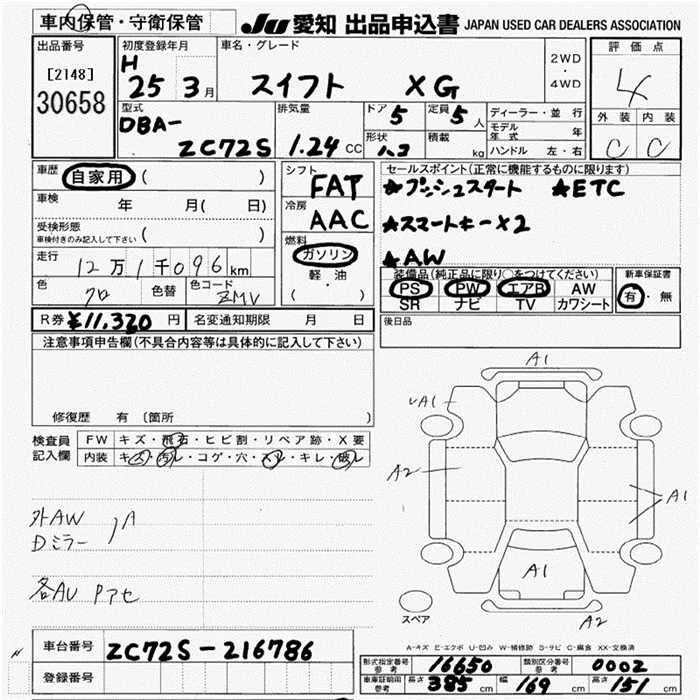 車内保管・守衛保管
JU 愛知 出品申込書 JAPAN USED CAR DEALERS ASSOCIATION
出品番号
[2148]
30658
初度登録年月
H
25 3月
車名・グレード
スイフト XG
2WD
・
4WD
評価点
4
外装 内装
C C
型式
DBA-
ZC72S
排気量
1.24 CC
ドア 5
定員 5 人
形状
積載 kg
ディーラー・並行
モデル年式 年
ハンドル 左・右
車歴 自家用 ( )
車検 年 月( 日)
受検形態
車検付きのみ記入して下さい ( )
走行
12万1千096km
色 クロ 色替 色コード ZMV
シフト
FAT
冷房
AAC
燃料
ガソリン
軽・油
( )
セールスポイント(正常に機能するものに限ります)
★プッシュスタート ★ETC
★スマートキー×2
★AW
装備品(純正品に限り○をつけてください) 新車保証書
PS PW エアB AW
SR ナビ TV カワシート
有・無
R券 ¥11,320 円 名変通知期限 月 日
後日品
注意事項申告欄(不具合内容等は具体的に記入して下さい)
修復歴 有 〔箇所 〕
検査員
記入欄
FW キズ・飛石・ヒビ割・リペア跡・X要
内装 キズ・汚レ・コゲ・穴・スレ・キレ・破レ
外AW
Dミラー
A
各AU Pアセ
A1
UA1
A2
A1
A1
A2
スペア
A-キズ E-エクボ U-凹み W-補修跡 S-サビ C-腐食 XX-交換済
車台番号 ZC72S-216786
登録番号
形式指定番号
参考
16650
類別区分番号
参考
0002
車庫証明用
参考
長さ 385 cm 幅 169 cm 高さ 151 cm